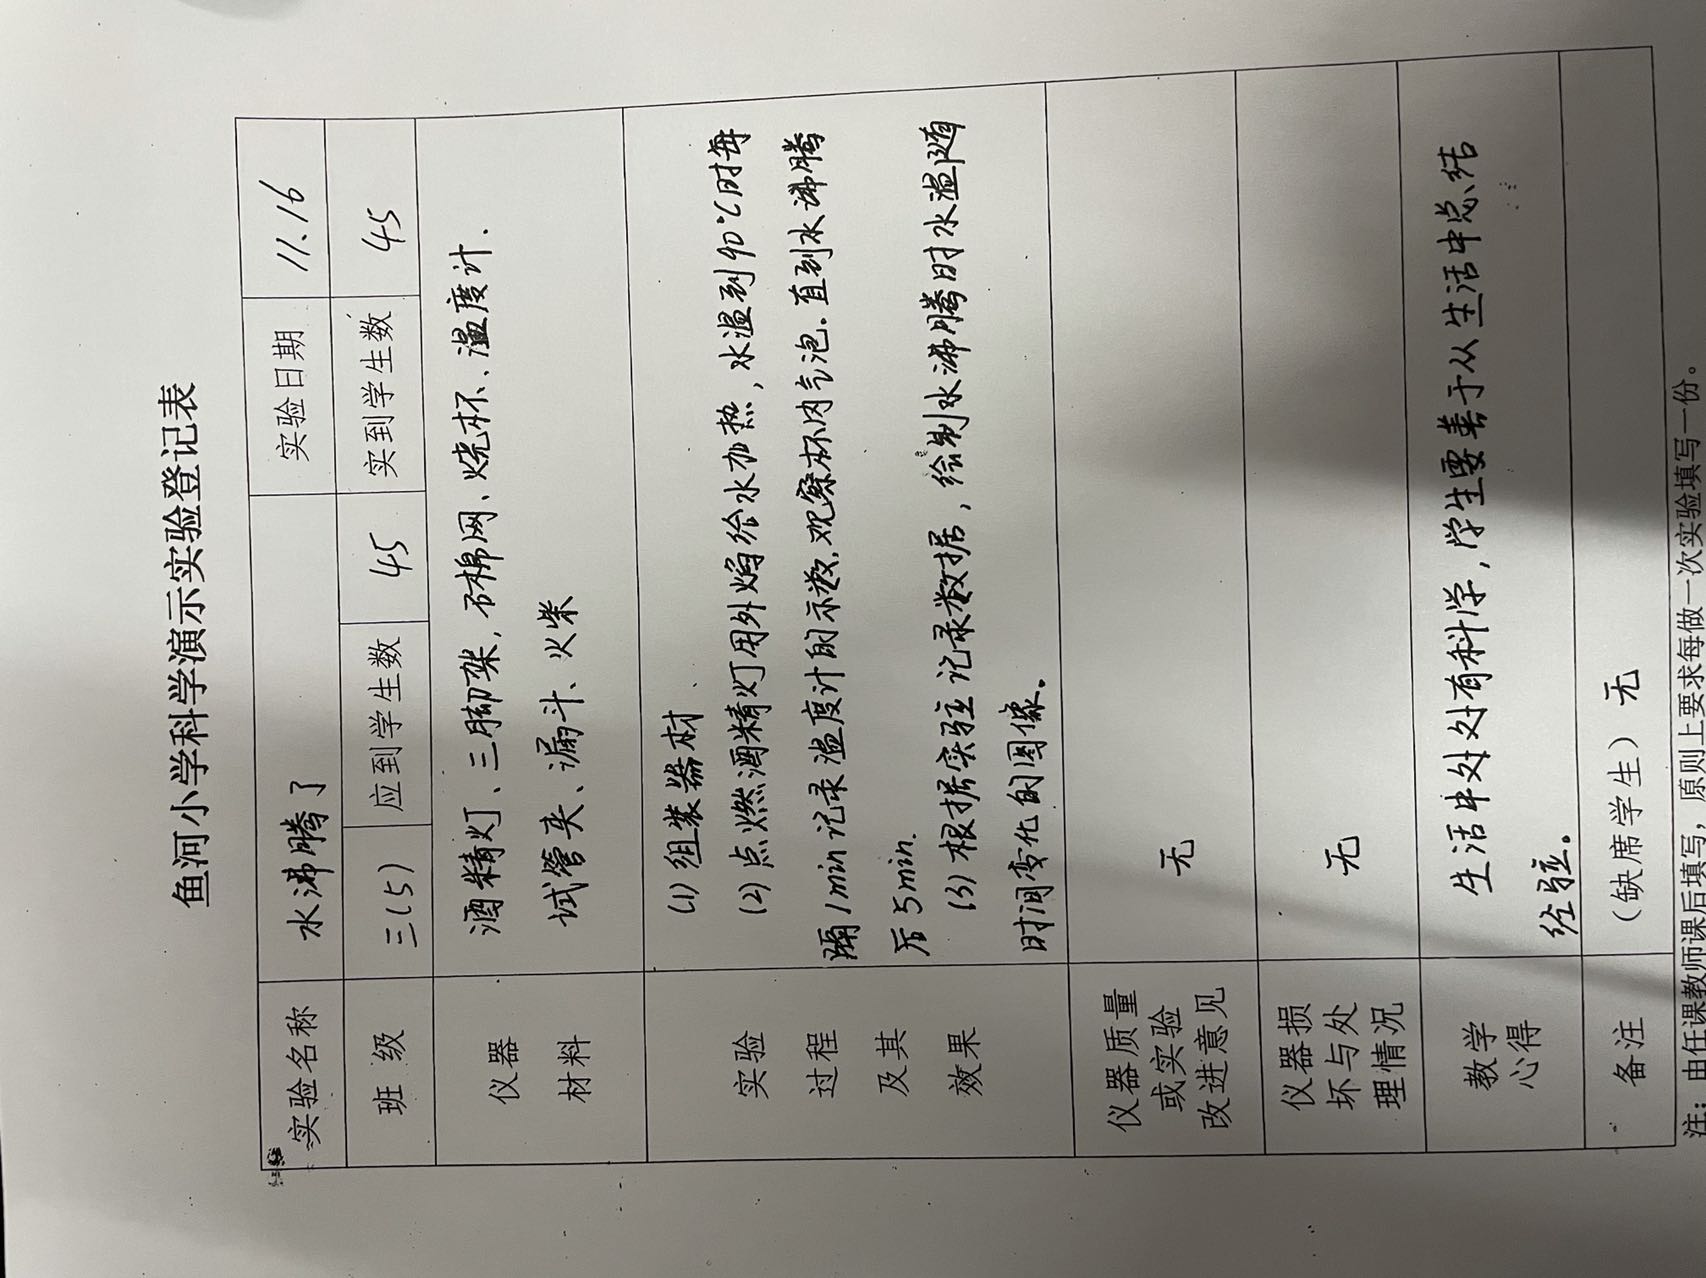 鱼河小学科学演示实验登记表
实验名称 水沸腾了 实验日期 11.16
班 级 三(5) 应到学生数 45 实到学生数 45
仪器
材料
酒精灯、三脚架,石棉网、烧杯、温度计.
试管夹、漏斗、火柴
实验
过程
及其
效果
(1) 组装器材
(2) 点燃酒精灯用外焰给水加热,水温到90℃时每
隔1min记录温度计的示数,观察杯内气泡.直到水沸腾
后5min.
(3) 根据实验记录数据,绘制水沸腾时水温随
时间变化的图像。
仪器质量
或实验
改进意见
无
仪器损
坏与处
理情况
无
教学
心得
生活中处处有科学,学生要善于从生活中总结
经验。
备注 (缺席学生) 无
注:由任课教师课后填写,原则上要求每做一次实验填写一份。